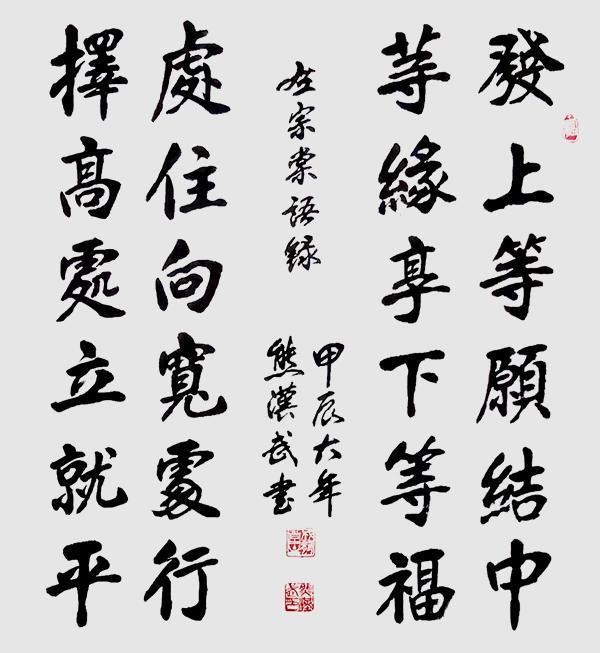 發上等願結中
等緣享下等福
擇高處立就平
處住向寬處行
左宗棠語錄
甲辰大年
熊漢武書